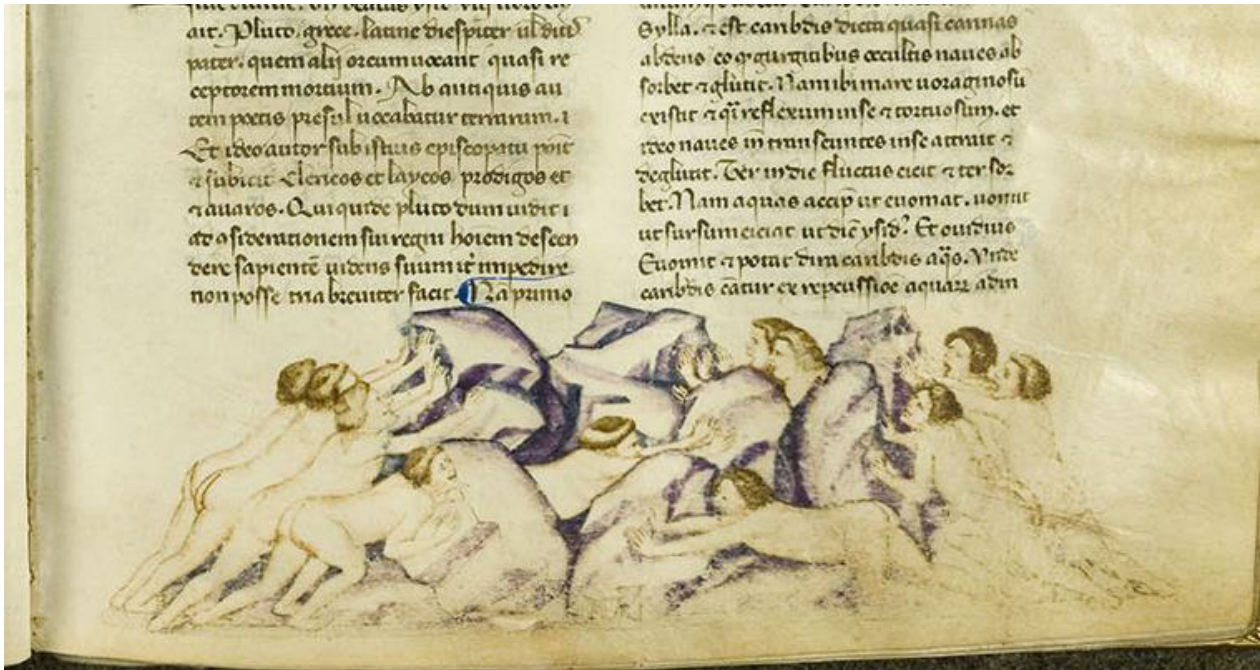 ait. Pluto. grece. latine diespiter ul diti͂
pater. quem alij orcum uocant quasi re
ceptorem mortium. Ab antiquis au
tem poetis presul uocabatur terrarum. i
Et ideo autor sub istius episcopatu poīt
⁊ subicit clericos et laycos prodigos et
⁊ auaros. Qui quidē pluto dum uidit i
ad ɔsiderationem sui regni hoīem descen
dere sapientē uidens suum it᷑ impedire
non posse tria breuiter facit. Nā primo
Sylla. ⁊ est caribdis dicta quasi carinas
abdens eo ꝙ gurgitibus occultis naues ab
sorbet ⁊ glutit. Nam ibi mare uoraginosū
existit ⁊ qī reflexum in se ⁊ tortuosum. et
ideo naues īn transeuntes in se attrait ⁊
deglutit. Ter in die fluctus eicit ⁊ ter sor
bet. Nam aquas accip̄ ut euomat. uomit
ut sursum eiciat ut dic̄ ysid᷑. Et ouidius
Euomit ⁊ potat dira caribdis aq̄s. Vnde
caribdis cātur ex repcussiōe aquarꝝ adin